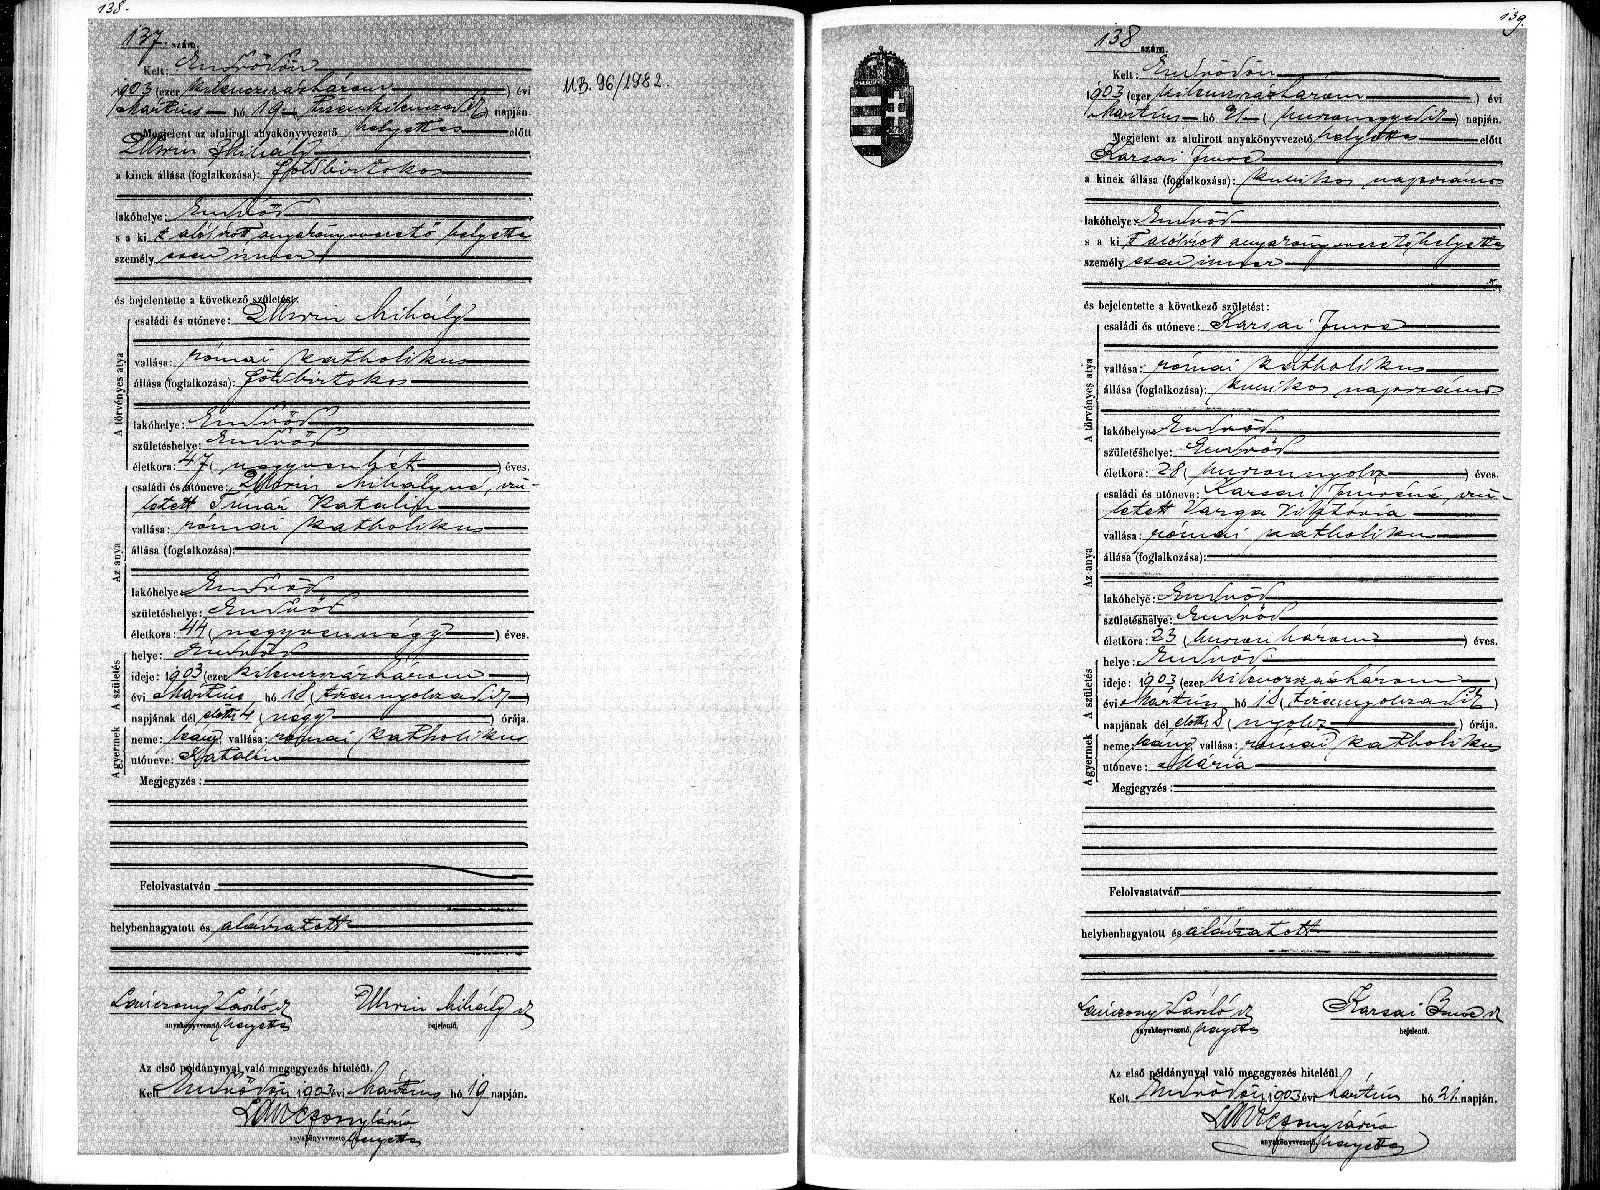 138.
137. szám.
Kelt: Endrődön
1903 (ezer kilenczszázhárom) évi
Mártius hó 19 (tizenkilenczedik) napján.
Megjelent az alulirott anyakönyvvezető helyettes előtt
Uhrin Mihály
a kinek állása (foglalkozása): földbirtokos
lakóhelye: Endrőd
s a ki t alólirott anyakönyvvezető helyettes
személyesen ismer
és bejelentette a következő születést:
A törvényes atya
családi és utóneve: Uhrin Mihály
vallása: római katholikus
állása (foglalkozása): földbirtokos
lakóhelye: Endrőd
születéshelye: Endrőd
életkora: 47 (negyvenhét) éves.
Az anya
családi és utóneve: Uhrin Mihályné, szü-
letett Tímár Katalin
vallása: római katholikus
állása (foglalkozása):
lakóhelye: Endrőd
születéshelye: Endrőd
életkora: 44 (negyvennégy) éves.
A születés
helye: Endrőd
ideje: 1903 (ezer kilenczszázhárom)
évi Mártius hó 18 (tizennyolczadik)
napjának dél előtti 4 (négy) órája.
A gyermek
neme: leány, vallása: római katholikus
utóneve: Katalin
Megjegyzés:
Felolvastatván
helybenhagyatott és aláiratott
Lauczony László
Uhrin Mihály
anyakönyvvezető helyettes
bejelentő.
Az első példánynyal való megegyezés hiteléül.
Kelt Endrődön, 1903 évi Mártius hó 19 napján.
anyakönyvvezető helyettes
MB. 96/1982.
139.
138 szám.
Kelt: Endrődön
1903 (ezer kilenczszázhárom) évi
Mártius hó 21 (huszonegyedik) napján.
Megjelent az alulirott anyakönyvvezető helyettes előtt
Karsai Imre
a kinek állása (foglalkozása): kubikos napszámos
lakóhelye: Endrőd
s a ki t alólirott anyakönyvvezető helyettes
személyesen ismer
és bejelentette a következő születést:
A törvényes atya
családi és utóneve: Karsai Imre
vallása: római katholikus
állása (foglalkozása): kubikos napszámos
lakóhelye: Endrőd
születéshelye: Endrőd
életkora: 28 (huszonnyolcz) éves.
Az anya
családi és utóneve: Karsai Imréné, szü-
letett Varga Viktória
vallása: római katholikus
állása (foglalkozása):
lakóhelye: Endrőd
születéshelye: Endrőd
életkora: 23 (huszonhárom) éves.
A születés
helye: Endrőd
ideje: 1903 (ezer kilenczszázhárom)
évi Mártius hó 18 (tizennyolczadik)
napjának dél előtti 8 (nyolcz) órája.
A gyermek
neme: leány, vallása: római katholikus
utóneve: Mária
Megjegyzés:
Felolvastatván
helybenhagyatott és aláiratott
Lauczony László
Karsai Imre
anyakönyvvezető helyettes
bejelentő.
Az első példánynyal való megegyezés hiteléül.
Kelt Endrődön, 1903 évi Mártius hó 21. napján.
anyakönyvvezető helyettes